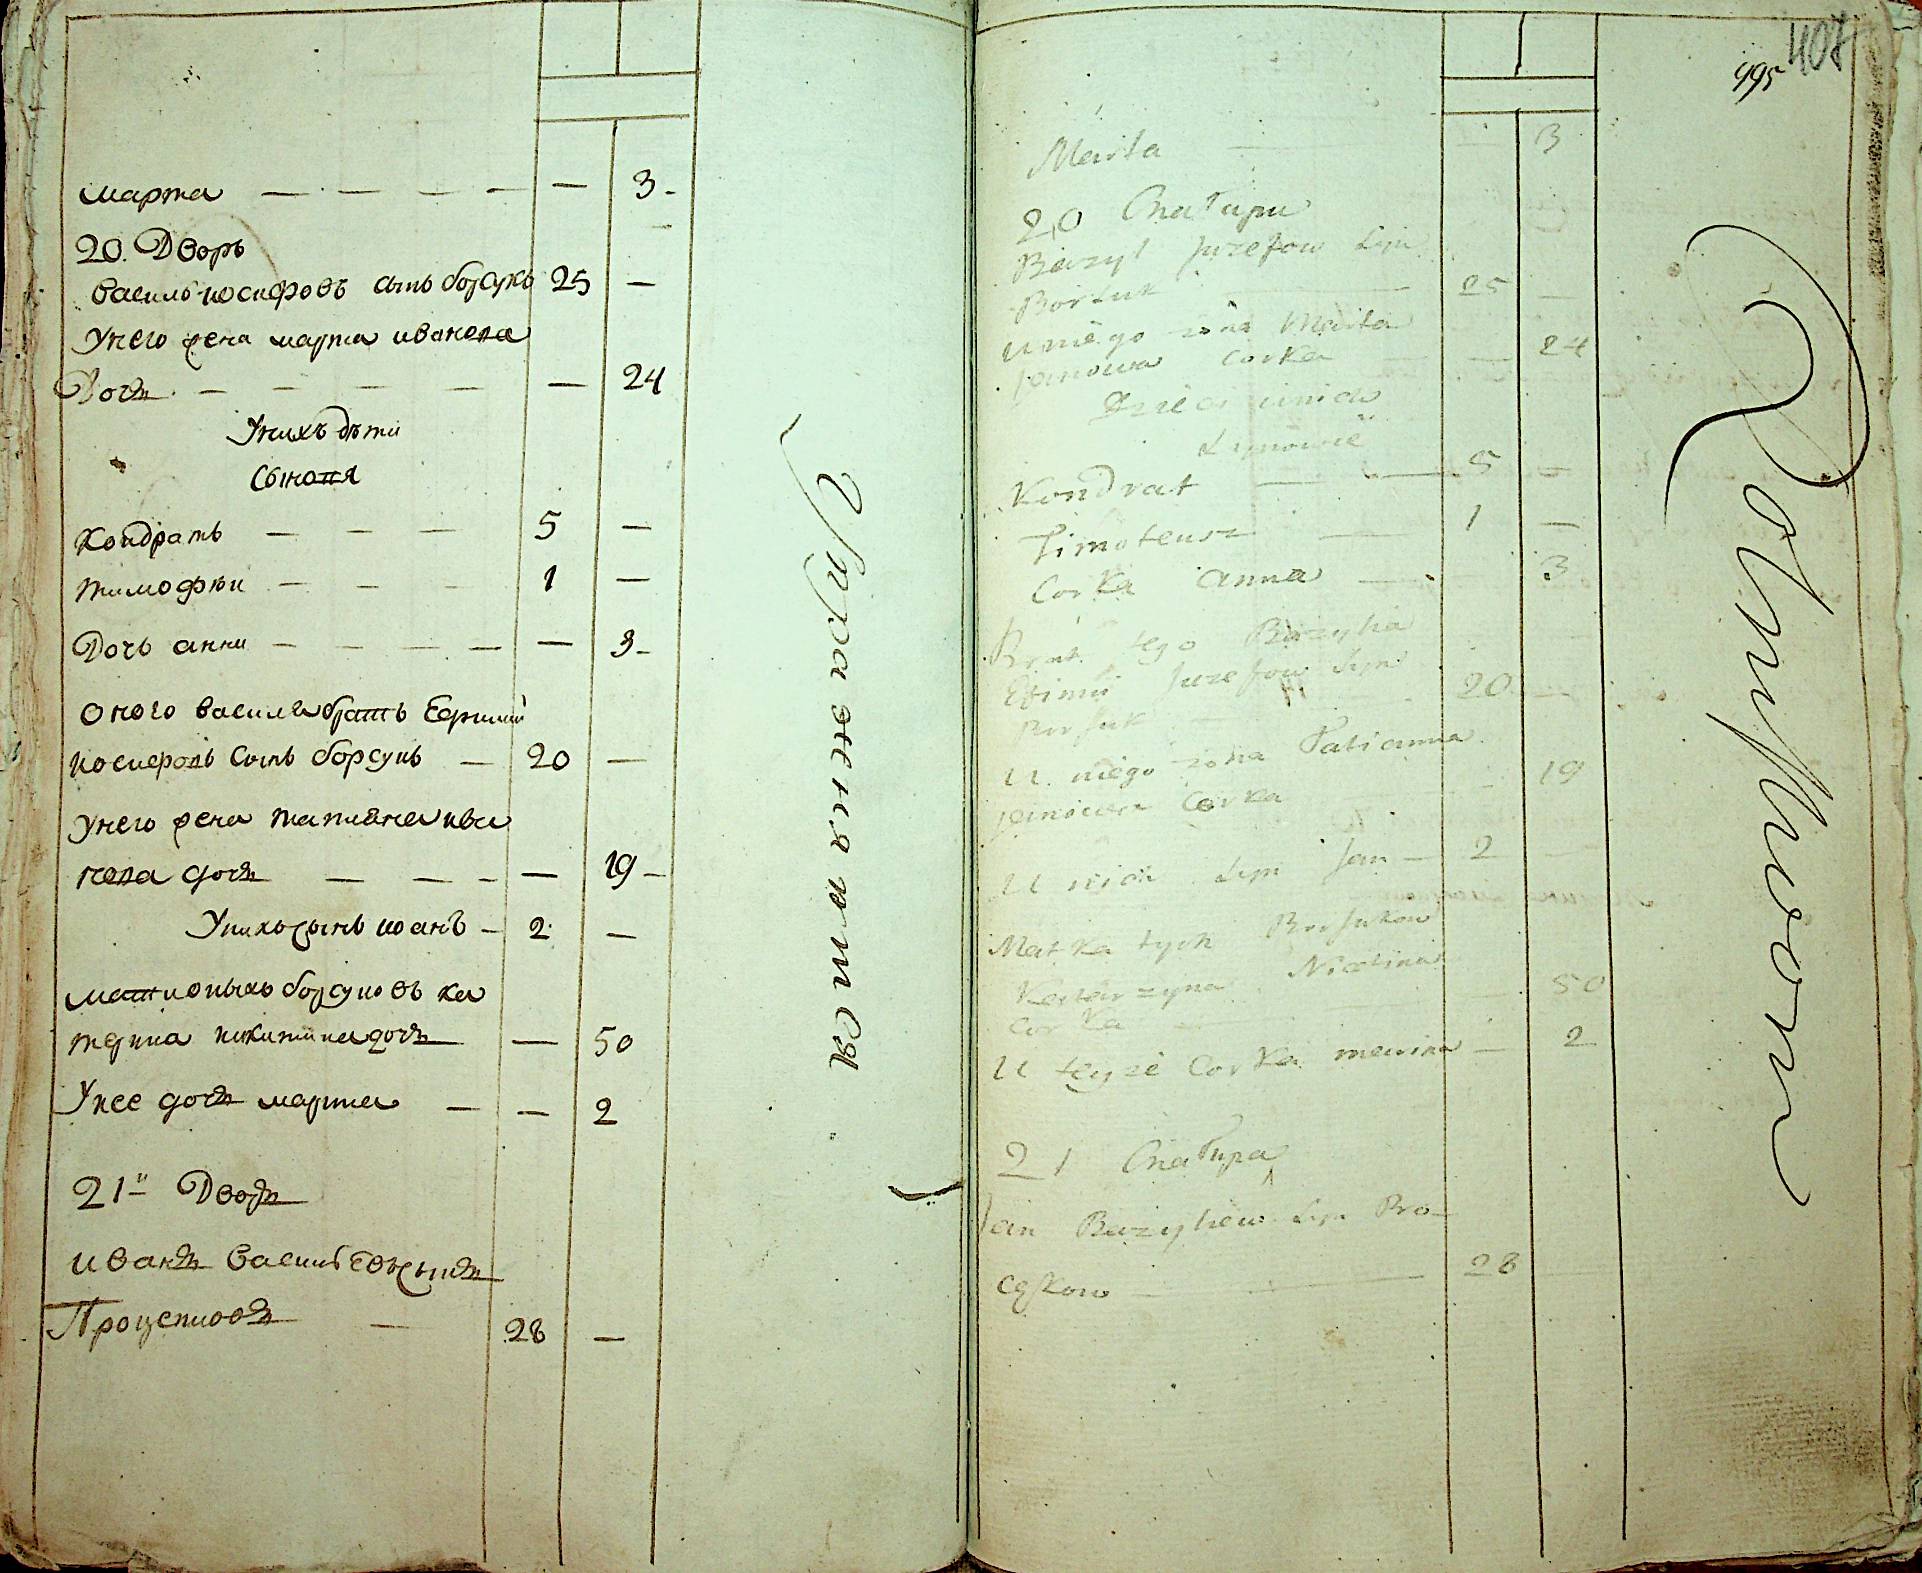 марта — — — — — 3 -
20. Дворъ
Василь иосифовъ сынъ борсукъ 25 —
Унего жена марта иванова
Дочъ — — — — — 24
Унихъ дѣти
Сыновя
Кондратъ — — — 5 —
тимофѣи — — — 1 —
Дочь анна — — — — — 3 -
оного василя братъ Ефимий
иосифовъ Сынъ борсукъ — 20 —
Унего жена татияна ива
нова дочъ — — — — 19 —
Унихъ сынъ иоанъ — 2 —
мати оныхъ борсуковъ ка
терина никитина дочъ — 50
Унее дочъ марина — — 2
21й Дворъ
иванъ Василевъ сынъ
Процепковъ — 28 —
495 407
Marta — — 3
20 Chatupa
Bazyl Juzefow Syn
Borsuk — 25 —
U niego żona Marta
Janowa corka — — 24
Dzieci u nich
Synowie
Kondrat — — 5 —
Timoteusz — 1 —
Corka anna — — 3
Brat tego Bazyla
Efimii Juzefow Syn
Borsuk 20 —
U niego żona Tatianna
janowa Corka — 19
U nich Syn Jan — 2 —
Matka tych Borsukow
Katarzyna Nikitina
Corka — — 50
U teyże Corka marina — 2
21 Chatupa
Jan Bazylew Syn Pro-
cepkow — — 28 —